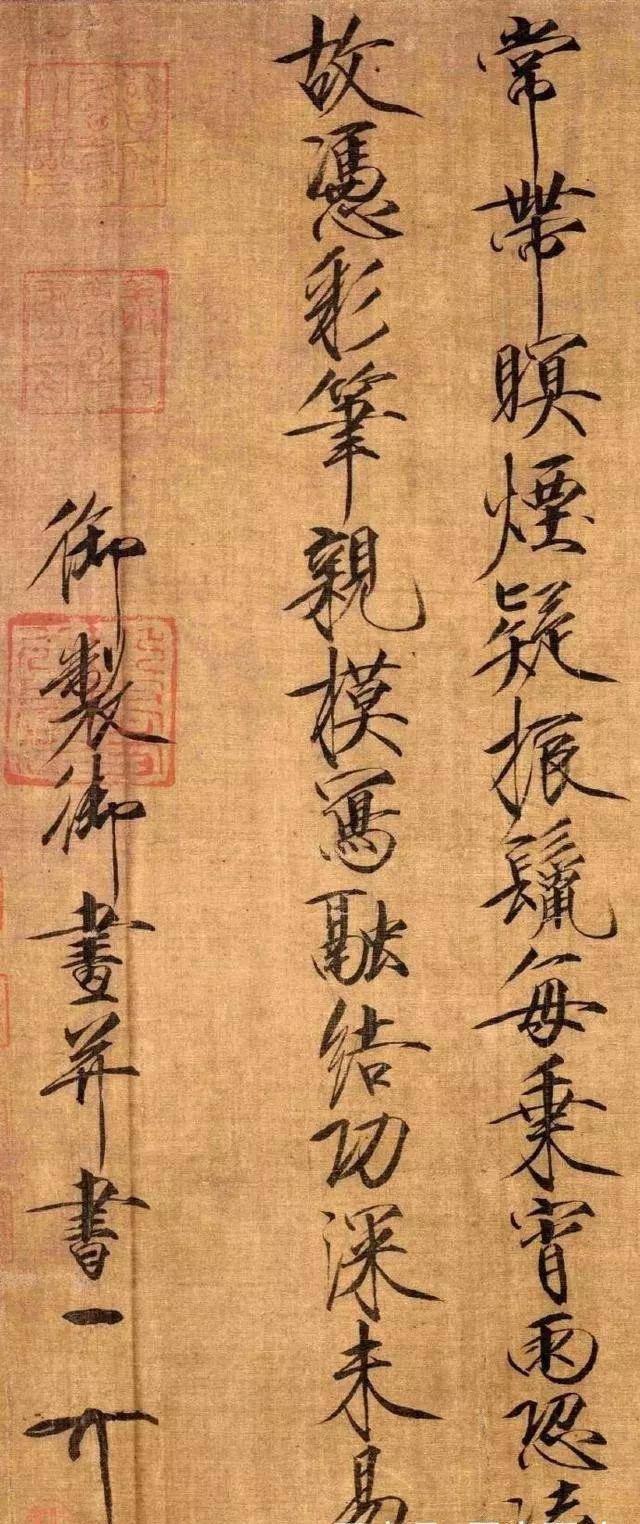 常帶暝煙疑振鬣每乗宵雨恐
故憑彩筆親模寫融結功深未易
御製御畫并書